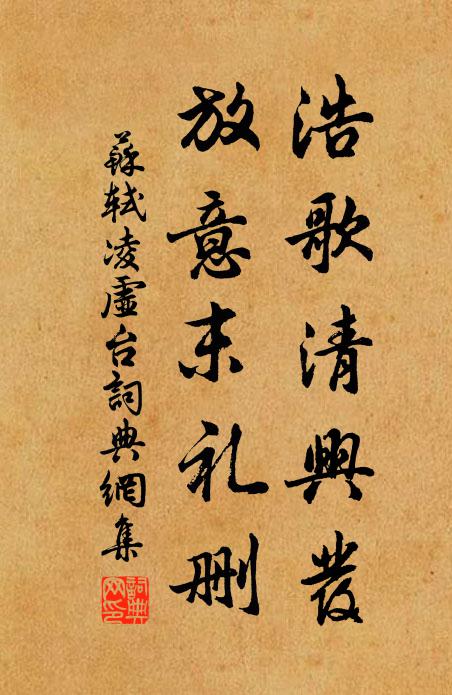 浩歌清興發
放意末礼删
蘇軾凌虛台詞典網集
詞典网印